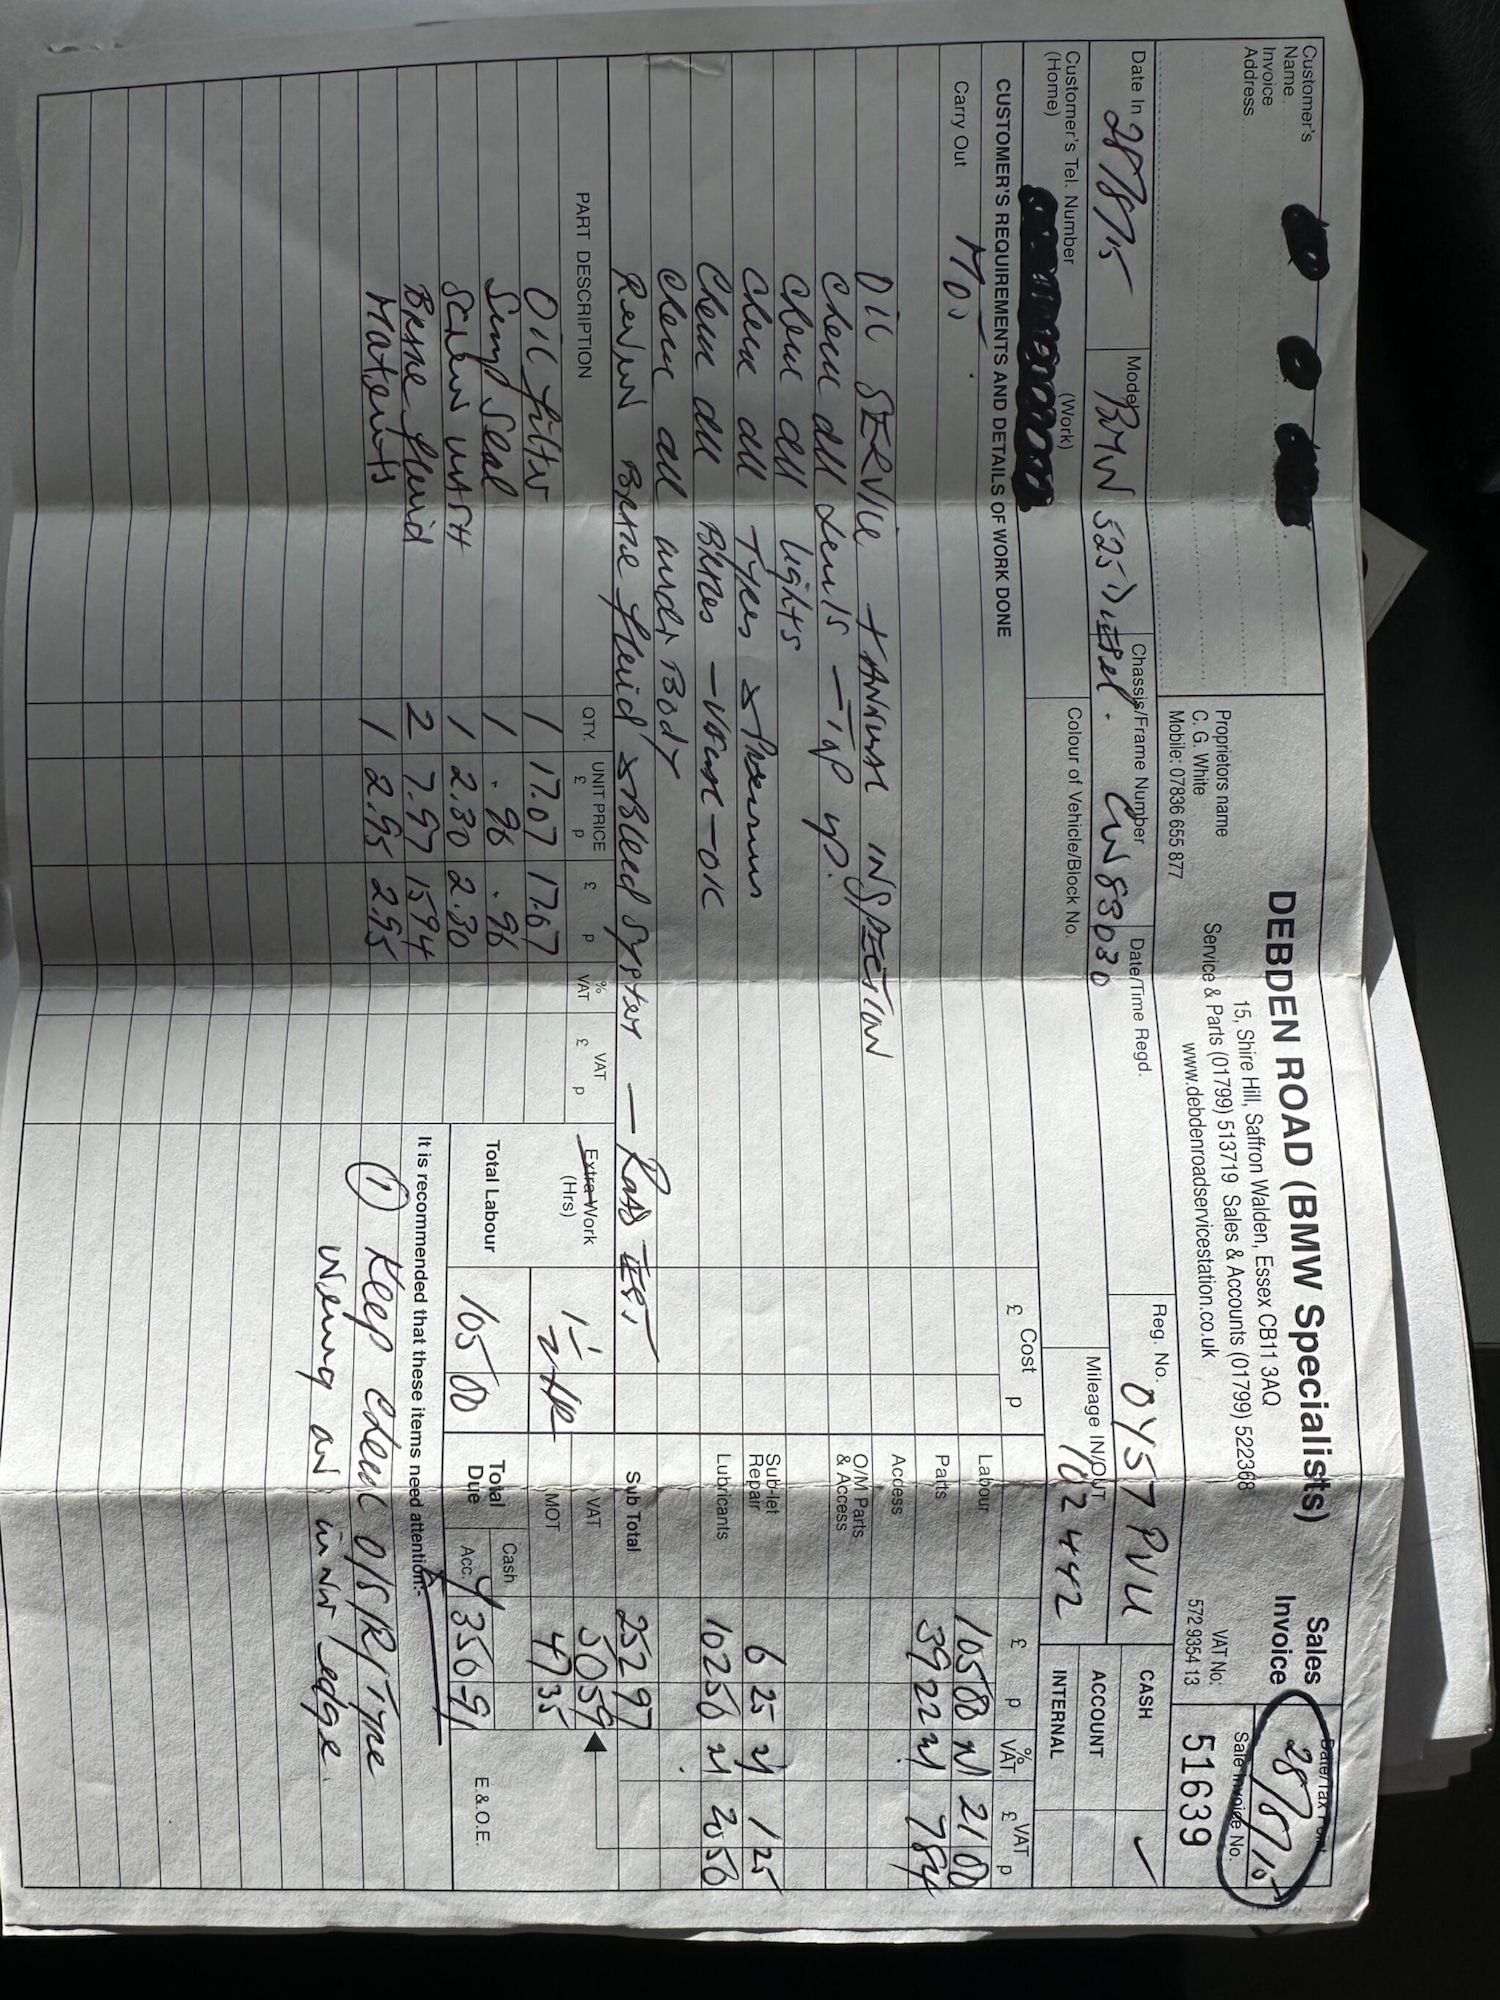 DEBDEN ROAD (BMW Specialists)
15, Shire Hill, Saffron Walden, Essex CB11 3AQ
Service & Parts (01799) 513719 Sales & Accounts (01799) 522368
www.debdenroadservicestation.co.uk
Sales
Invoice
Date/Tax Point
28/8/15
Sale Invoice No.
51639
VAT No:
572 9354 13
Customer's
Name
Invoice
Address
Proprietors name
C. G. White
Mobile: 07836 655 877
Date In 28/8/15
Model BMW 525 Diesel.
Chassis/Frame Number CW83030
Date/Time Regd.
Reg. No. OY57 PVU
CASH ✓
ACCOUNT
INTERNAL
Customer's Tel. Number
(Home)
(Work)
Colour of Vehicle/Block No.
Mileage IN/OUT 102442
CUSTOMER'S REQUIREMENTS AND DETAILS OF WORK DONE
Cost
£ p
£ p % VAT £ VAT p
Carry Out MOT.
OIL SERVICE + ANNUAL INSPECTION
Check all levels - Top up.
Check all lights
Check all Tyres & Pressures
Check all Brakes - - OK
Check all under Body
Renew Brake fluid & Bleed System - Road Test
Labour 105 00 21 00
Parts 39 22 7 84
Access
O/M Parts
& Access
Sub-let
Repair 6 25 1 25
Lubricants 102 50 20 50
Sub Total 252 97
VAT 50 59
MOT 47 35
Total
Due
Cash
Acc. 350-91
E.&O.E.
PART DESCRIPTION QTY. UNIT PRICE £ p £ p % VAT £ VAT p
Oil filter 1 17.07 17.07
Sump Seal 1 .96 .96
Screen wash 1 2.30 2.30
Brake fluid 2 7.97 15.94
Materials 1 2.95 2.95
Extra Work
(Hrs)
Total Labour 105 00
It is recommended that these items need attention:-
① Keep check O/S/R/Tyre
wearing on inner edge.